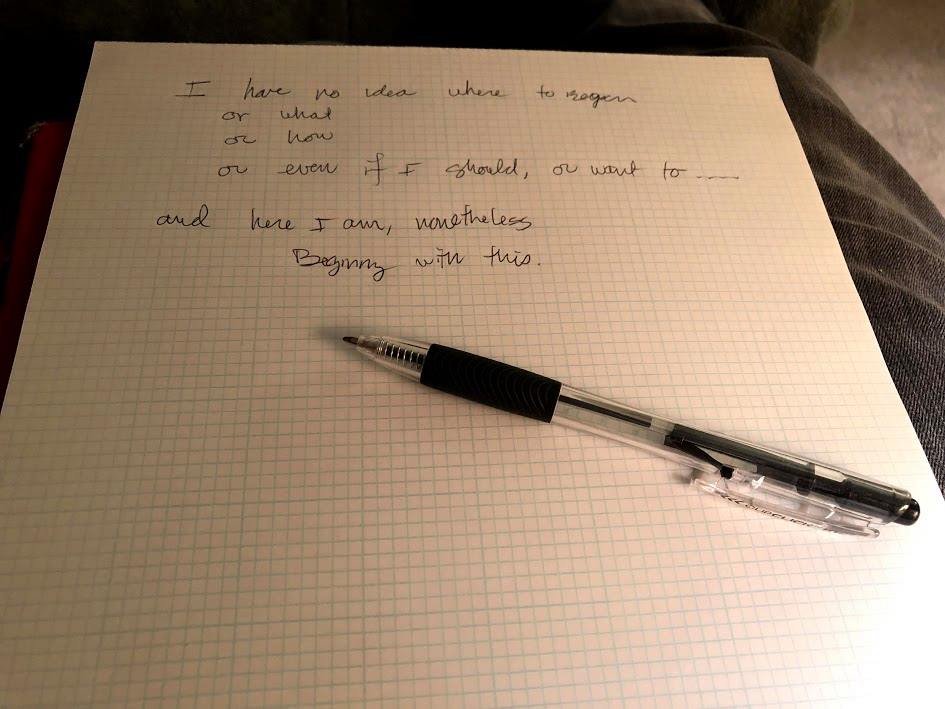 I have no idea where to begin
or what
or how
or even if I should, or want to .....
and here I am, nonetheless
Beginning with this.